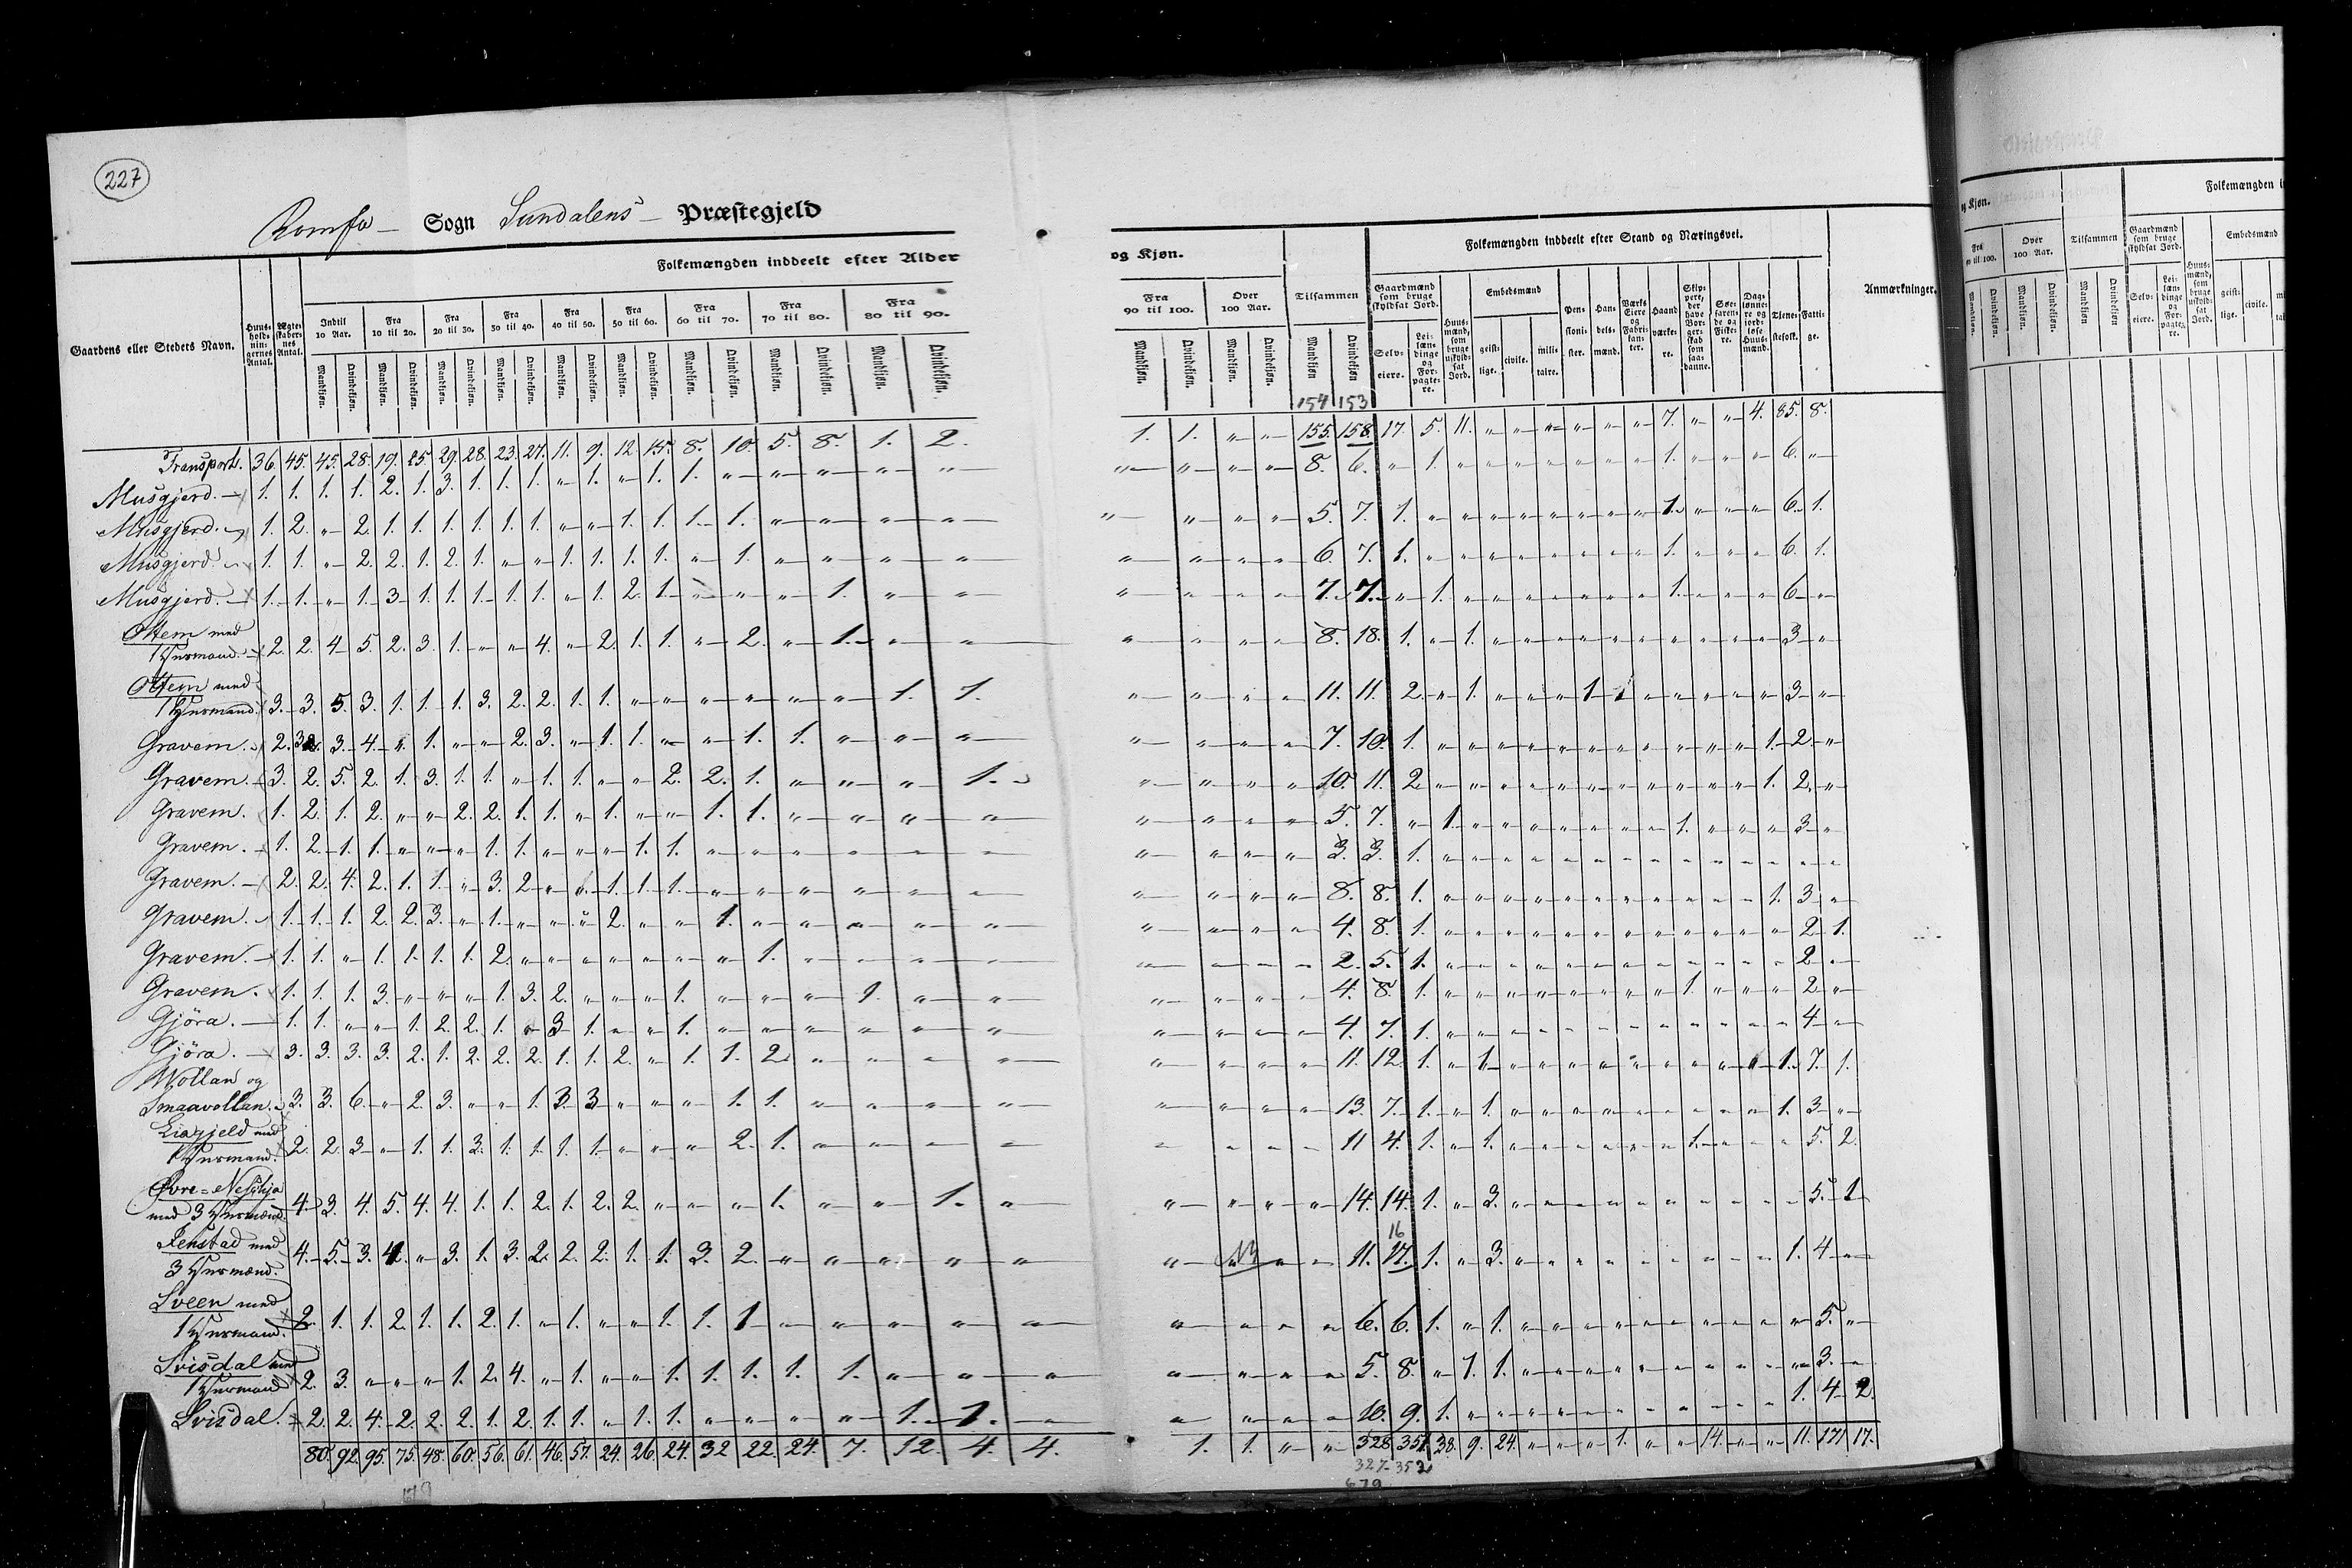 227
Romfo Sogn Sundalens Præstegjeld
Folkemængden inddeelt efter Alder og Kjøn.
Folkemængden inddeelt efter Stand og Næringsvei.
Gaardens eller Stedets Navn.
Huus-hold-nin-gernes Antal.
Ægte-skaber-nes Antal.
Indtil 10 Aar.
Fra 10 til 20.
Fra 20 til 30.
Fra 30 til 40.
Fra 40 til 50.
Fra 50 til 60.
Fra 60 til 70.
Fra 70 til 80.
Fra 80 til 90.
Fra 90 til 100.
Over 100 Aar.
Tilsammen
Mandkjøn. Qvindekjøn.
Gaardmænd som bruge skyldsat Jord.
Selv-eiere.
Lei-læn-dinge og For-pagte-re.
Huus-mænd, som bruge uskyld-sat Jord.
Embedsmænd
geist-lige.
civile.
mili-taire.
Pen-sioni-ster.
Han-dels-mænd.
Værks Eiere og Fabri-kan-ter.
Haand værke-re.
Skip-pere, der have Bor-ger-skab som saa-danne.
Søe-faren-de og Fiske-re.
Dag-lønne-re og jord-løse Huus-mænd.
Tjene-stefolk.
Fatti-ge.
Anmærkninger.
154 153
Transport. 36. 45. 45. 28. 19. 25. 29. 28. 23. 27. 11. 9. 12. 15. 8. 10. 5. 8. 1. 2. 1. 1. " " 155. 158. 17. 5. 11. " " " " " " 7. " " 4. 85. 8.
Musgjerd. 1. 1. 1. 1. 2. 1. 3. 1. 1. 1. " 1. " 1. 1. " " " " " " " " " 8. 6. " 1. " " " " " " " 1. " " " 6. "
Musgjerd. 1. 2. " 2. 1. 1. 1. 1. 1. 1. " " 1. 1. 1. 1. " " " " " " " " 5. 7. 1. " " " " " " " " 1. " " " 6. 1.
Musgjerd. 1. 1. " 2. 2. 1. 2. 1. " " 1. 1. 1. 1. " 1. " " " " " " " " 6. 7. 1. " " " " " " " " 1. " " " 6. 1.
Musgjerd. 1. 1. " 1. 3. 1. 1. 1. 1. 1. " 1. 2. 1. " " " 1. " " " " " " 7. 7. " 1. " " " " " " " 1. " " " 6. "
Ottem med
1 Huusmand. 2. 2. 4. 5. 2. 3. 1. " " 4. " 2. 1. 1. " 2. " 1. " " " " " " 8. 18. 1. " 1. " " " " " " " " " " 3. "
Ottem med
1 Huusmand. 3. 3. 5. 3. 1. 1. 1. 3. 2. 2. 1. 1. " " " " " " 1. 1. " " " " 11. 11. 2. " 1. " " " 1. 1 " " " " " 3. "
Gravem. 2. 3 3. 4. " 1. " " 2. 3. " 1. 1. " " 1. 1. " " " " " " " 7. 10. 1. " " " " " " " " " " " 1. 2. "
Gravem. 3. 2. 5. 2. 1. 3. 1. 1. " 1. 1. " " 2. 2. 1. " " " 1. " " " " 10. 11. 2. " " " " " " " " " " " 1. 2. "
Gravem. 1. 2. 1. 2. " " 2. 2. 1. 1. " 1. " " 1. 1. " " " " " " " " 5. 7. " 1. " " " " " " " 1. " " " 3. "
Gravem. 1. 2. 1. 1. " " " 1. 1. " " " 1. 1. " " " " " " " " " " 3. 3. 1. " " " " " " " " " " " " " "
Gravem. 2. 2. 4. 2. 1. 1. " 3. 2. " " 1. 1. 1. " " " " " " " " " " 8. 8. 1. " " " " " " " " " " " 1. 3. "
Gravem. 1. 1. 1. 2. 2. 3. " 1. " " " 2. " " 1. " " " " " " " " " 4. 8. 1. " " " " " " " " " " " " 2. 1.
Gravem. 1. 1. " 1. 1. 1. 1. 2. " " " " " " " 1. " " " " " " " " 2. 5. 1. " " " " " " " " " " " " 2 "
Gravem. 1. 1. 1. 3. " " " 1. 3. 2. " " " 1. " " " 1. " " " " " " 4. 8. 1. " " " " " " " " 1. " " " 2. "
Gjöra. 1. 1. " " 1. 2. 2. 1. " 3. 1. " " 1. " " " " " " " " " " 4. 7. 1. " " " " " " " " " " " " 4. "
Gjöra. 3. 3. 3. 3. 2. 1. 2. 2. 2. 1. 1. 2. " 1. 1. 2. " " " " " " " " 11. 12. 1. " 1. " " " " " " " " " 1. 7. 1.
Wollan og
Smaavollan. 3. 3. 6. " 2. 3. " " 1. 3. 3. " " " 1. 1. " " " " " " " " 13. 7. 1. " 1. " " " " " " " " " 1. 3. "
Liagjeld med
1 Huusmand. 2. 2. 3. " 1. 1. 3. 1. 1. 1. 1. " " " 2. 1. " " " " " " " " 11 4. 1. " 1. " " " " " " 1. " " " 5. 2.
Øvre-Nesthja
med 3 Huusmænd. 4. 3. 4. 5. 4. 4. 1. 1. 2. 1. 2. 2. " " " 1. " " 1. " " " " " 14. 14. 1. " 3. " " " " " " " " " " 5. 1
16
Fenstad med
3 Huusmænd. 4. 5. 3. 4. " 3. 1. 3. 2. 2. 2. 1. 1. 3. 2. " " " " " " " " 11. 17. 1. " 3. " " " " " " " " " 1. 4. "
Sveen med
1 Huusmand. 2. 1. 1. 2. 1. 1. 2. 1. " 1. " " 1. 1. 1 " " " " " " " " " 6. 6. 1. " 1. " " " " " " " " " " 5. "
Svisdal med
1 Huusmand 2. 3. " " " 1. 2. 4. " 1. " " 1. 1. 1. 1. 1. " " " " " " " 5. 8. " 1. 1. " " " " " " " " " " 3. "
Svisdal. 2. 2. 4. 2. 2. 2. 1. 2. 1. 1. " 1. 1. " " " " 1. 1. " " " " " 10. 9. 1. " " " " " " " " " " " 1. 4. 2.
80. 92. 95. 75. 48. 60. 56. 61. 46. 57. 24. 26. 24. 32. 22. 24. 7. 12. 4. 4. 1. 1. " " 328. 351. 38. 9. 24. " " " 1. " " 14. " " 11. 171. 17.
327. 352
679